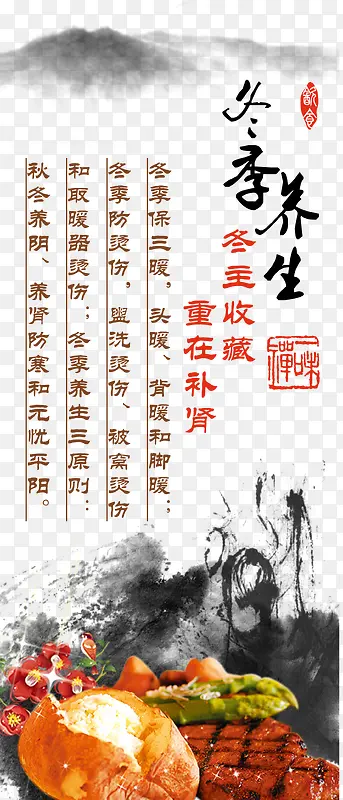 冬季养生
饮食
冬主收藏
重在补肾
一味禅
冬季保三暖，头暖、背暖和脚暖；
冬季防烫伤，盥洗烫伤、被窝烫伤
和取暖器烫伤；冬季养生三原则：
秋冬养阴、养肾防寒和无忧平阳。